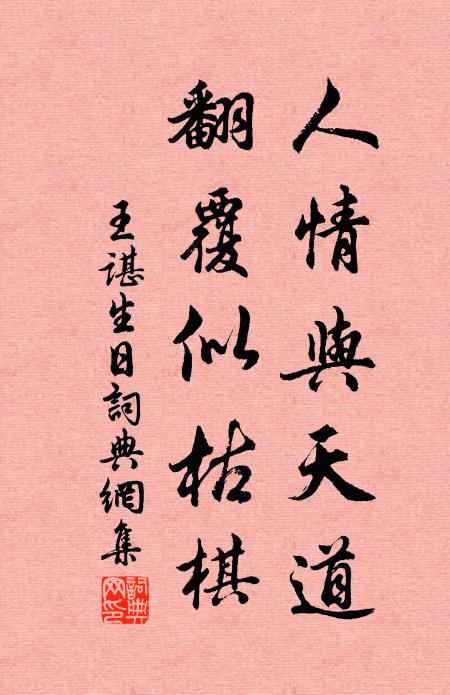 人情與天道
翻覆似枯棋
王諶生日詞典網集
詞典網印